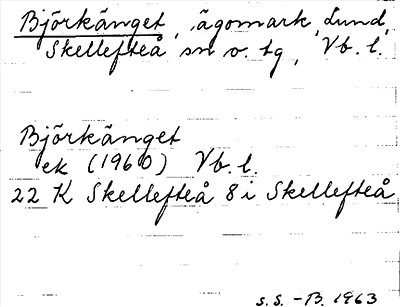 Björkänget, ägomark, Lund,
Skellefteå sn o. tg, Vb. l.
Björkänget
ek (1960) Vb. l.
22 K Skellefteå 8 i Skellefteå
S.S. - B. 1963